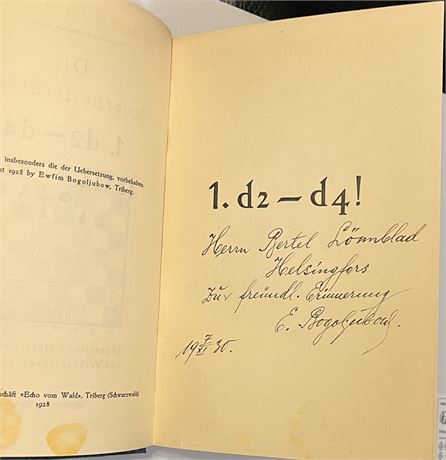 insbesonders die der Uebersetzung, vorbehalten.
1928 by Ewfim Bogoljubow, Triberg.
«Echo vom Wald», Triberg (Schwarzwald)
1928
1. d2 — d4!
Herrn Bertel Lönnblad
Helsingfors
Zur freundl. Erinnerung
E. Bogoljubow.
19 7/XI 30.